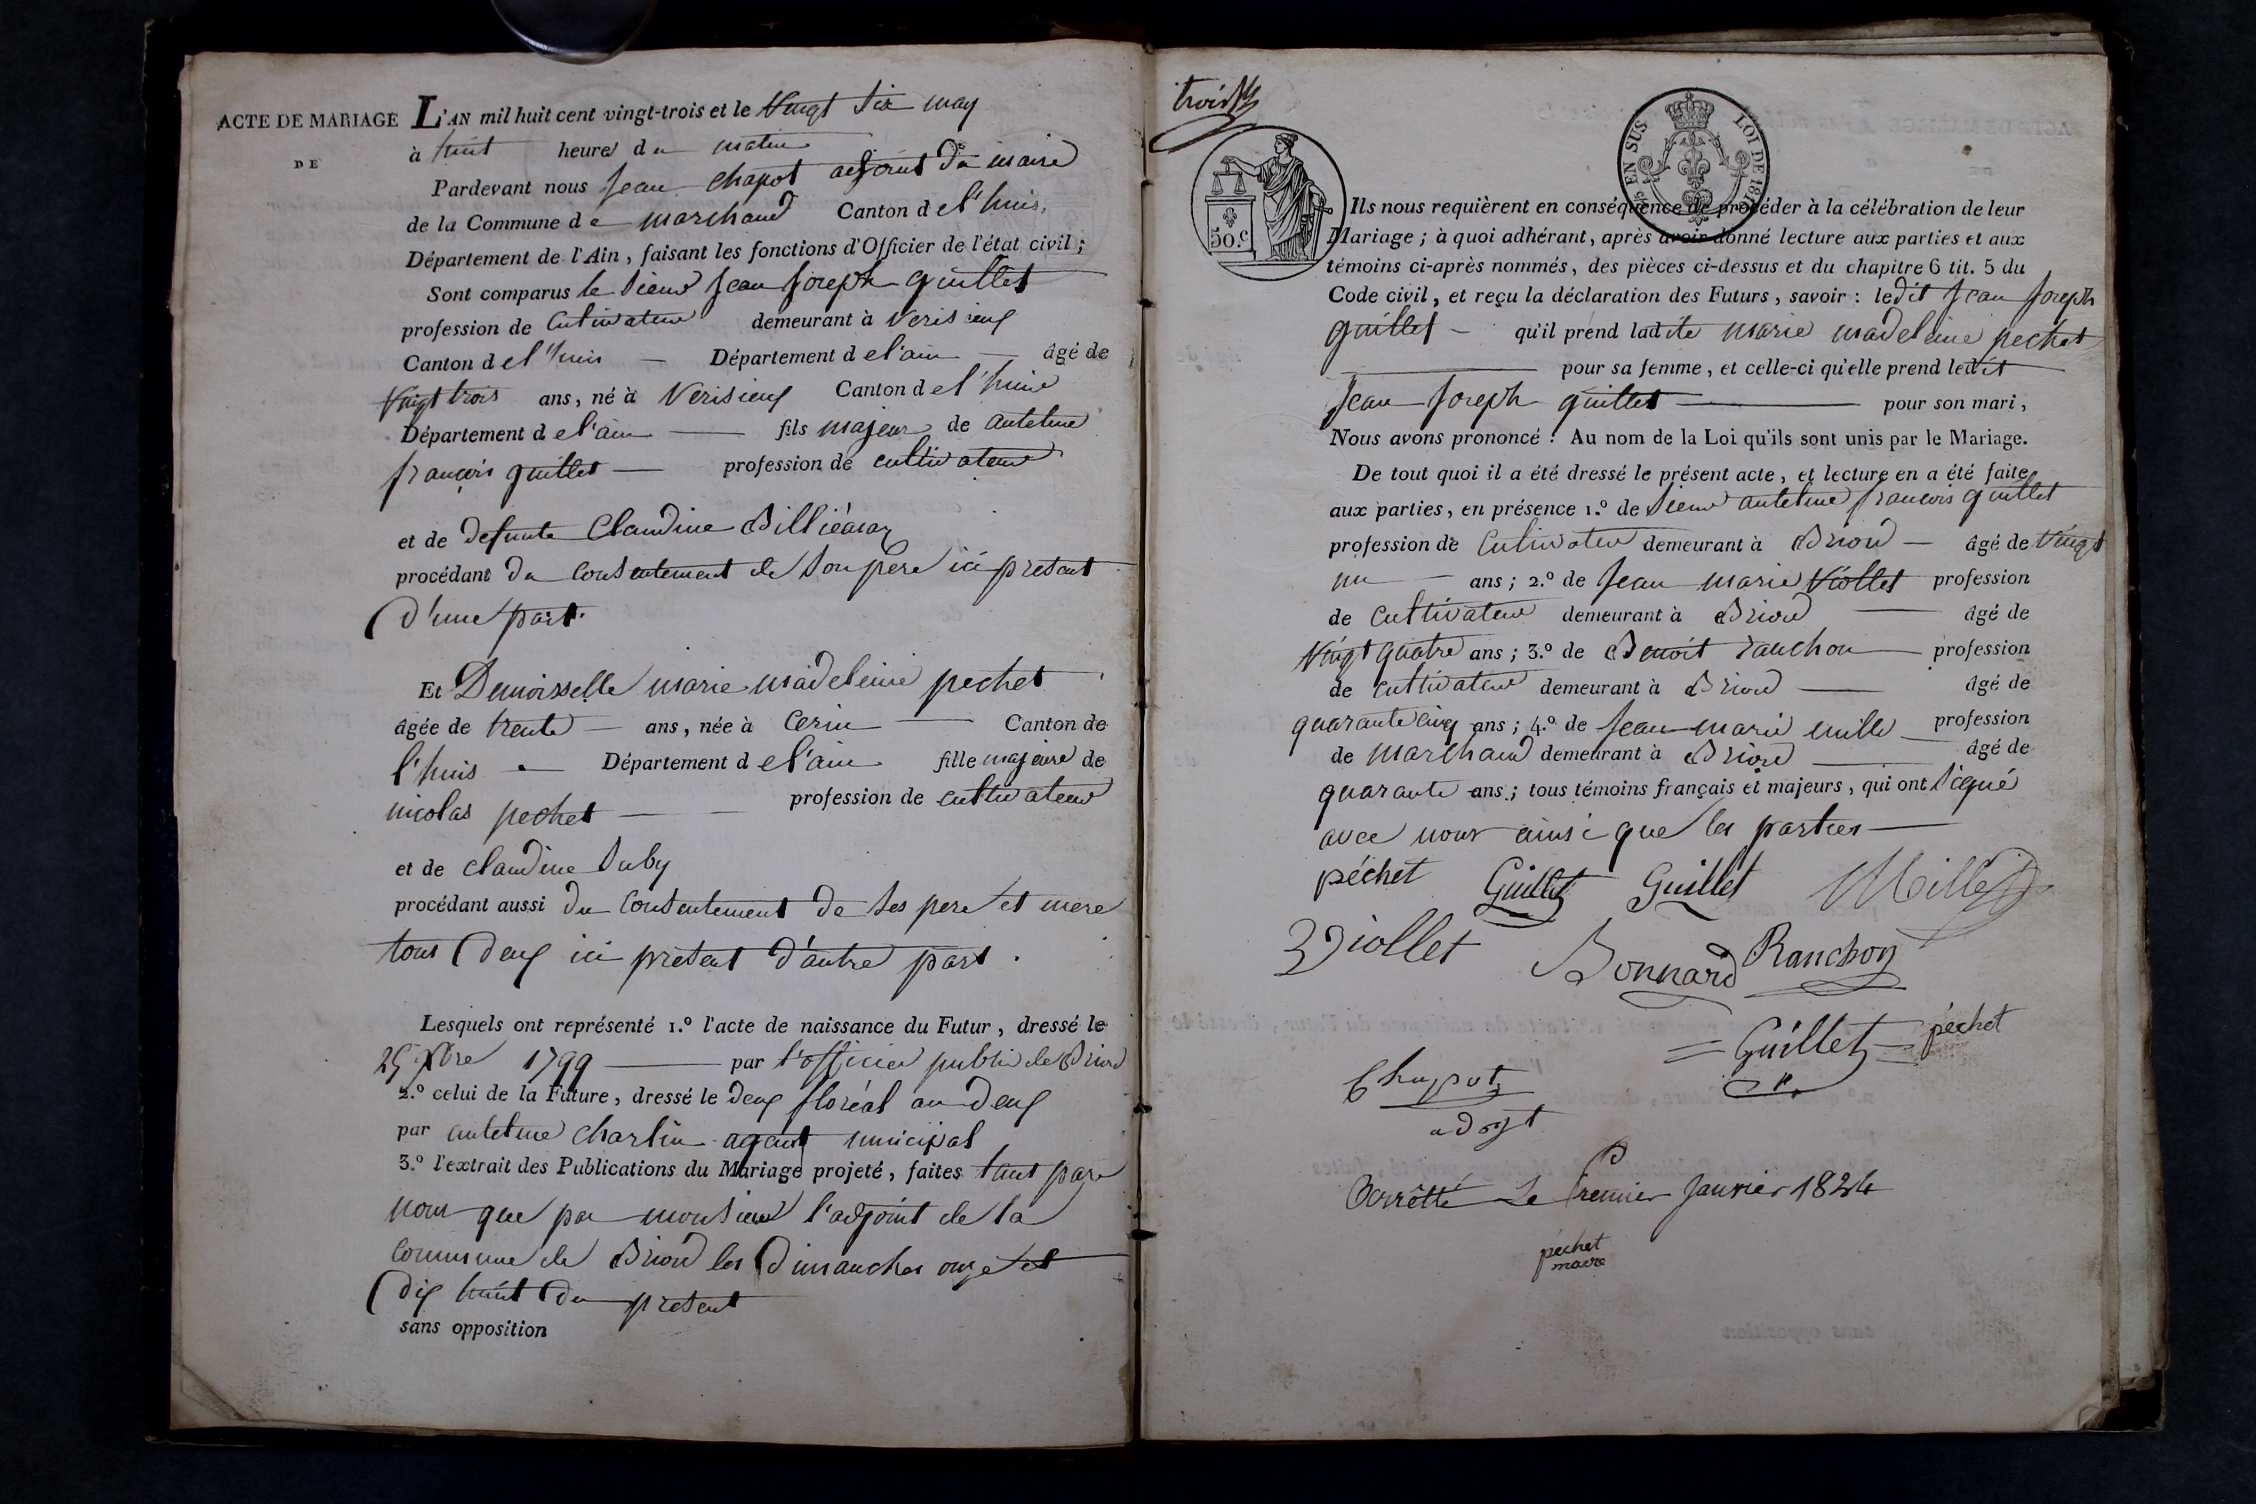 ACTE DE MARIAGE
DE
L'AN mil huit cent vingt-trois et le Vingt Six may
à huit heures du matin
Pardevant nous Jean Chapot adjoint du maire
de la Commune de marchand Canton de l'huis,
Département de l'Ain, faisant les fonctions d'Officier de l'état civil;
Sont comparus le Sieur Jean Joseph guillet
profession de Cultivateur demeurant à Verisieux
Canton de l'huis Département de l'ain âgé de
Vingt trois ans, né à Verisieux Canton de l'huis
Département de l'ain fils majeur de antelme
françois guillet profession de cultivateur
et de defunte Claudine Billiémaz
procédant du Consentement de Son pere ici présent
d'une part.
Et Demoisselle marie madeleine pechet
âgée de trente ans, née à Cerin Canton de
l'huis Département de l'ain fille majeure de
nicolas pechet profession de cultivateur
et de claudine Suby
procédant aussi du Consentement de Ses pere et mere
tous deux ici présent d'autre part.
Lesquels ont représenté 1.º l'acte de naissance du Futur, dressé le
1799 par l'officier public de Briord
2.º celui de la Future, dressé le deux floréal an deux
par antelme Charlin agent municipal
3.º l'extrait des Publications du Mariage projeté, faites tant par
nous que par monsieur l'adjoint de la
Commune de Briord les Dimanches onze et
dix huit du présent
sans opposition
trois
50.c
EN SUS
LOI DE 181
Ils nous requièrent en conséquence de procéder à la célébration de leur
Mariage; à quoi adhérant, après avoir donné lecture aux parties et aux
témoins ci-après nommés, des pièces ci-dessus et du chapitre 6 tit. 5 du
Code civil, et reçu la déclaration des Futurs, savoir: ledit Jean Joseph
guillet qu'il prend ladite marie madeleine pechet
pour sa femme, et celle-ci qu'elle prend ledit
Jean Joseph guillet pour son mari,
Nous avons prononcé: Au nom de la Loi qu'ils sont unis par le Mariage.
De tout quoi il a été dressé le présent acte, et lecture en a été faite
aux parties, en présence 1.º de Sieur antelme françois guillet
profession de Cultivateur demeurant à Briord âgé de Vingt
un ans; 2.º de Jean marie Viollet profession
de Cultivateur demeurant à Briord âgé de
Vingt quatre ans; 3.º de Benoit ranchon profession
de cultivateur demeurant à Briord âgé de
quarante cinq ans; 4.º de Jean marie mille profession
de marchand demeurant à Briord âgé de
quarante ans; tous témoins français et majeurs, qui ont Signé
avec nous ainsi que les parties
péchet Guillet Guillet Millet
Viollet Bonnard Ranchon
Guillet péchet
Chapot
adojt
Arrêtté Le Premier Janvier 1824
péchet
maire